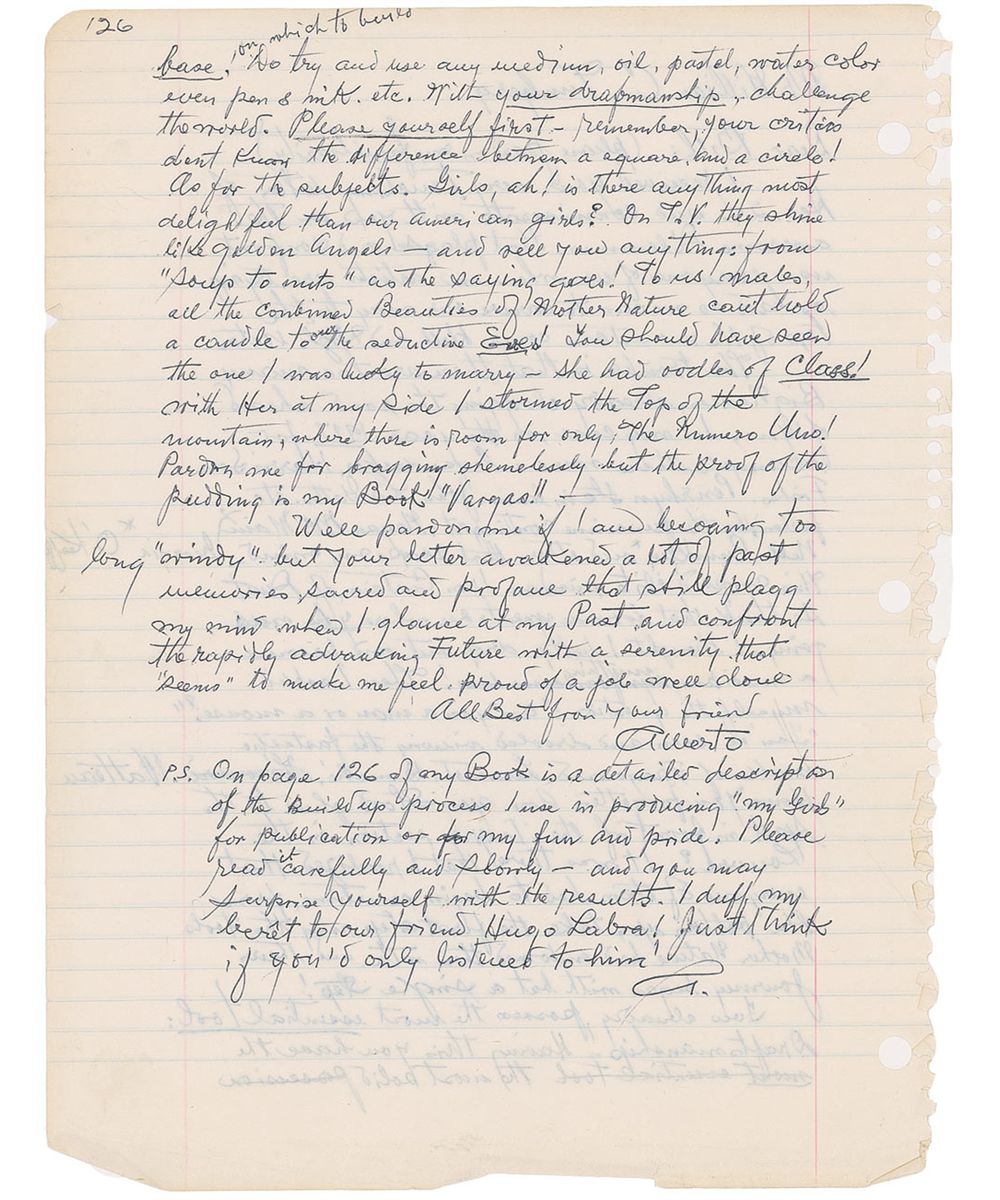 126
on which to build
base! Do try and use any medium, oil, pastel, water color
even pen & ink. etc. With your drafmanship, challenge
the world. Please yourself first – remember, your critics
dont know the difference between a square, and a circle!
As for the subjects. Girls, ah! is there anything most
delightfull than our american girls? On T.V. they shine
like golden Angels – and sell you anything: from
"soup to nuts" as the saying goes! To us males,
all the combined Beauties of Mother Nature can't hold
a candle to our the seductive Eves! You should have seen
the one I was lucky to marry – she had oodles of Class!
with Her at my side I stormed the Top of the
mountain, where there is room for only, The Numero Uno!
Pardon me for bragging shemelessly but the proof of the
pudding is my Book "Vargas!" –
Well pardon me if I am becoming too
long "windy" but your letter awakened a lot of past
memories, sacred and profane that still plagg
my mind when I glance at my Past, and confront
the rapidly advancing Future with a serenity that
"seems" to make me feel proud of a job well done
All Best from your friend
Alberto
P.S. On page 126 of my Book is a detailed description
of the Build up process I use in producing "my Girls"
for publication or for my fun and pride. Please
read it carefully and slowly – and you may
surprise yourself with the results. I duff my
beret to our friend Hugo Labra! Just think
if you'd only listened to him!
A.